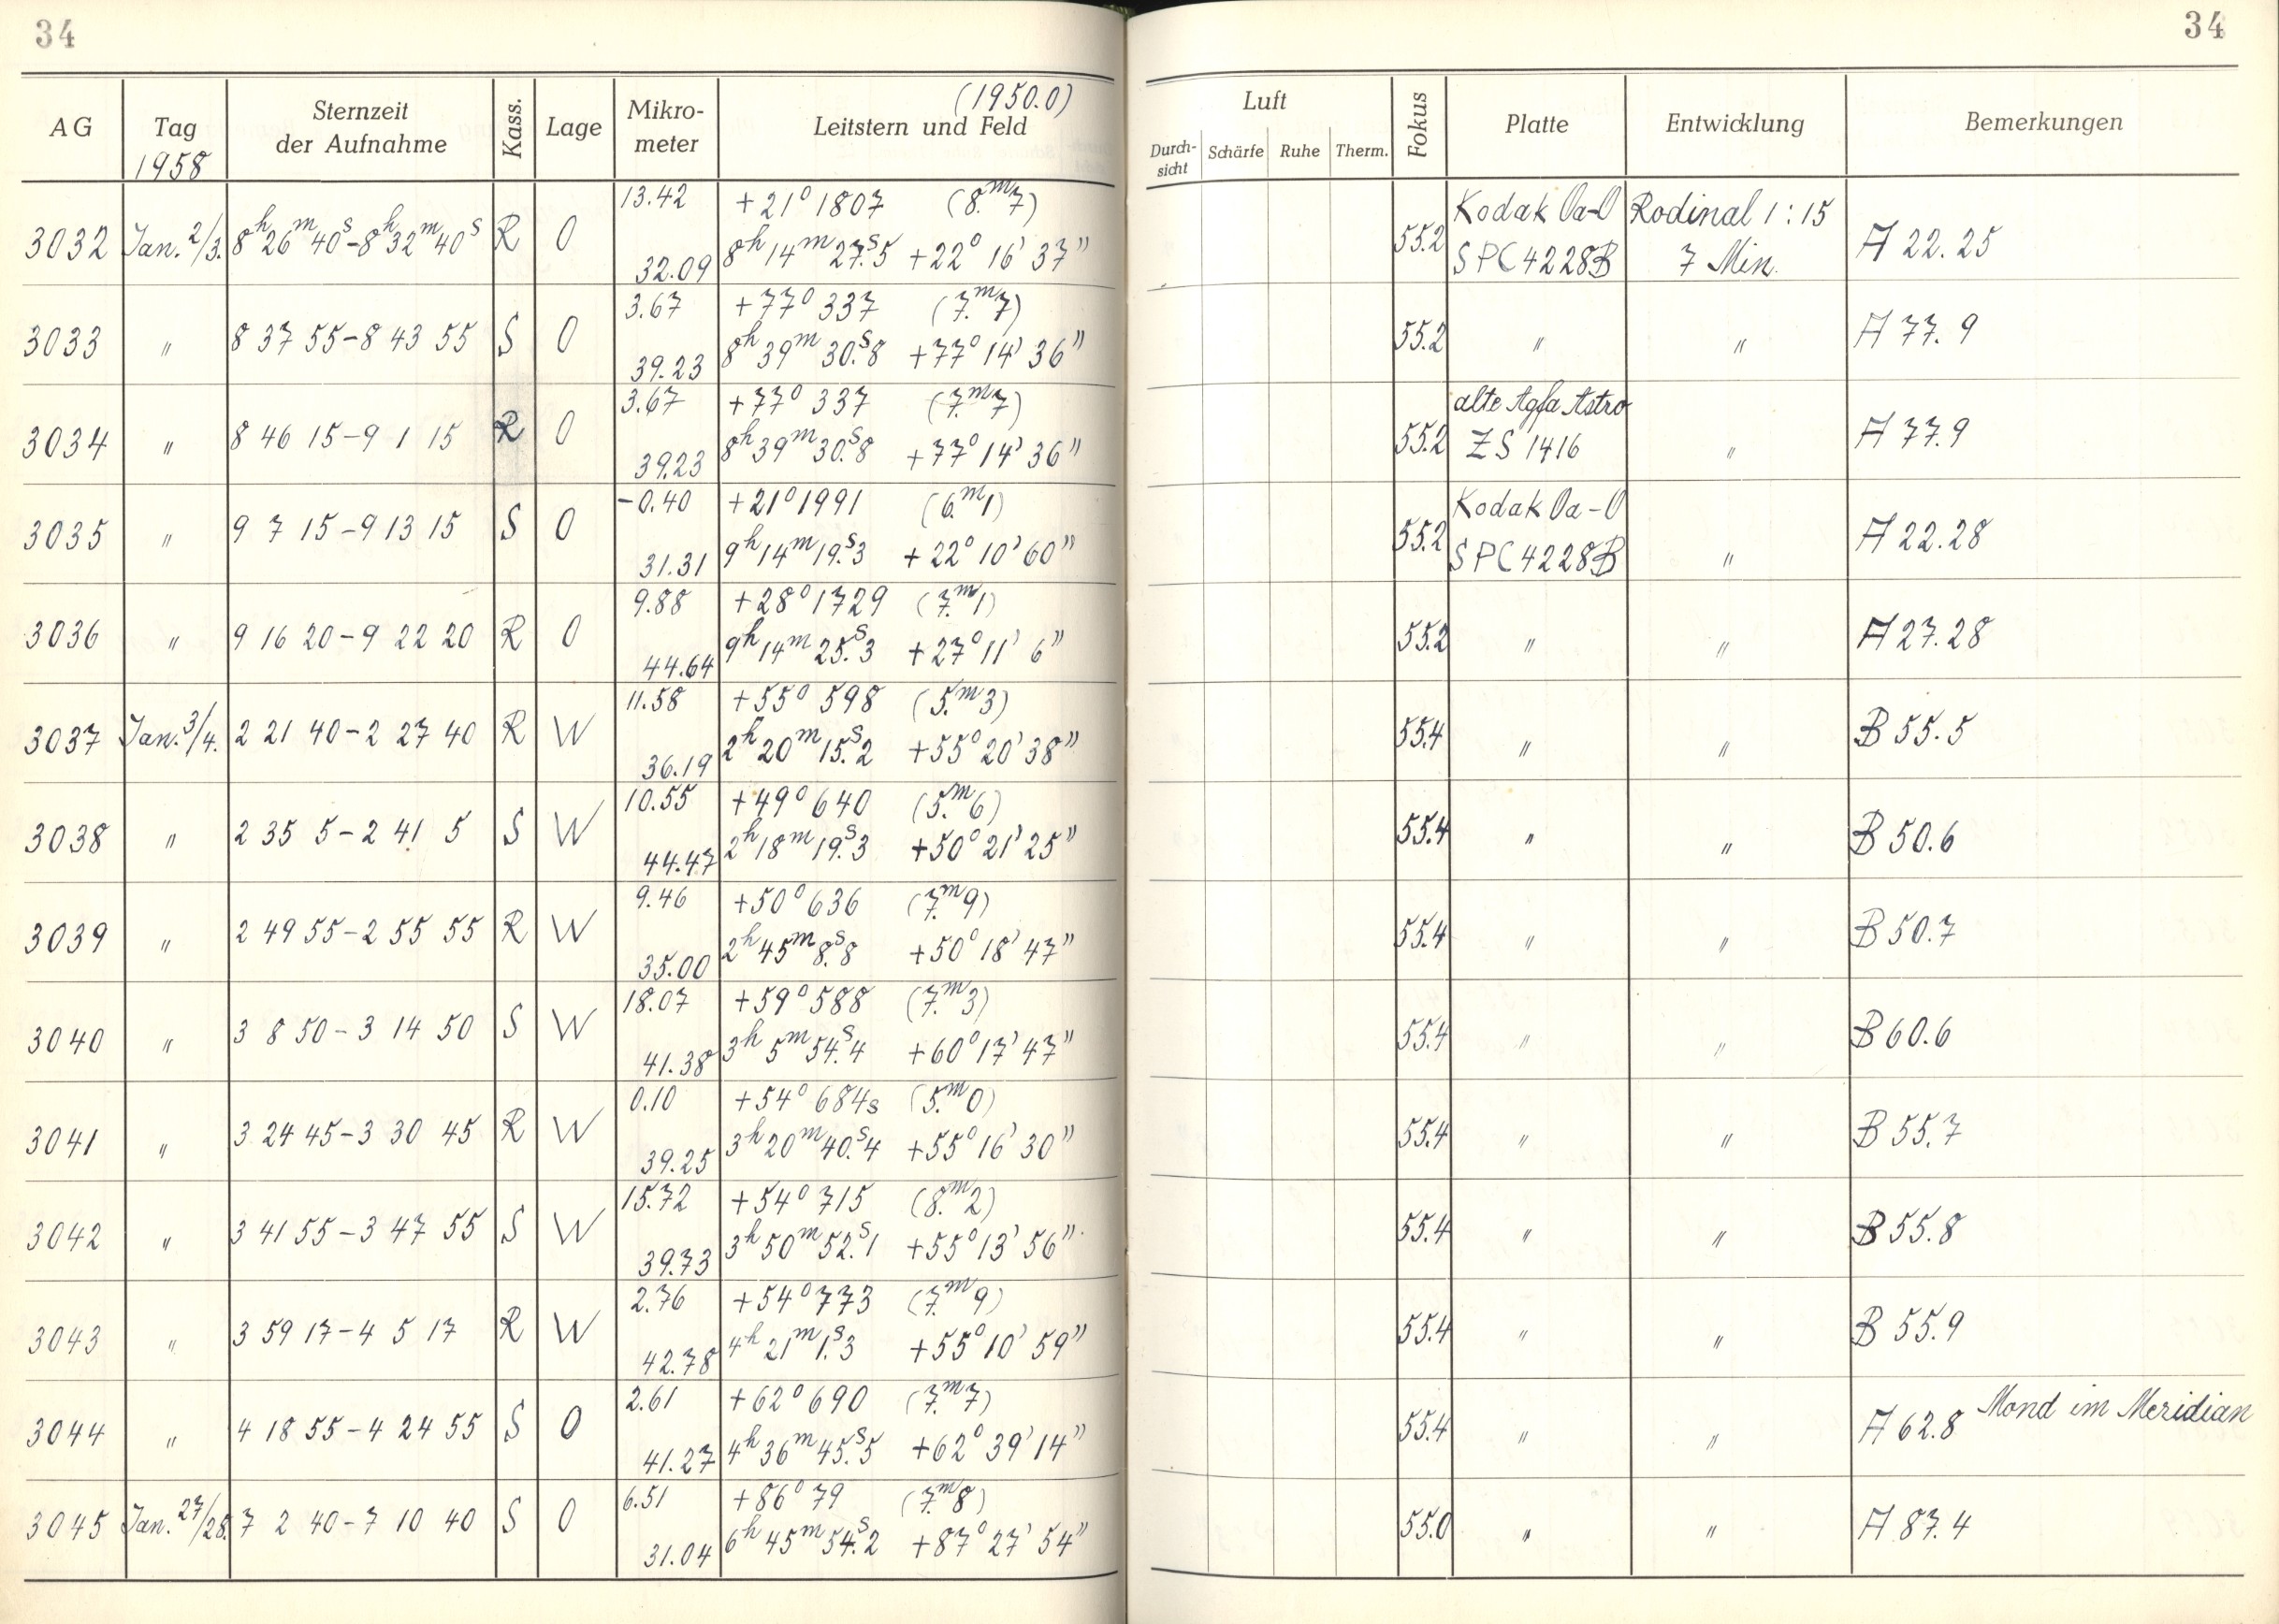 34
34
(1950.0)
AG Tag Sternzeit der Aufnahme Kass. Lage Mikro-meter Leitstern und Feld Luft Durch-sicht Schärfe Ruhe Therm. Fokus Platte Entwicklung Bemerkungen
1958
13.42 +21° 1807 (8.m7) Kodak Oa-O Rodinal 1:15
3032 Jan. 2/3. 8h26m40s-8h32m40s R O 32.09 8h 14m 27.s5 +22° 16' 37" 55.2 SPC4228B 7 Min. A 22.25
3.67 +77° 337 (7.m7)
3033 " 8 37 55-8 43 55 S O 39.23 8h 39m 30.s8 +77° 14' 36" 55.2 " " A 77.9
3.67 +77° 337 (7.m7) alte Agfa Astro
3034 " 8 46 15-9 1 15 R O 39.23 8h 39m 30.s8 +77° 14' 36" 55.2 ZS 1416 " A 77.9
-0.40 +21° 1991 (6.m1) Kodak Oa-O
3035 " 9 7 15-9 13 15 S O 31.31 9h 14m 19.s3 +22° 10' 60" 55.2 SPC4228B " A 22.28
9.88 +28° 1729 (7.m1)
3036 " 9 16 20-9 22 20 R O 44.64 9h 14m 25.s3 +27° 11' 6" 55.2 " " A 27.28
11.58 +55° 598 (5.m3)
3037 Jan. 3/4. 2 21 40-2 27 40 R W 36.19 2h 20m 15.s2 +55° 20' 38" 55.4 " " B 55.5
10.55 +49° 640 (5.m6)
3038 " 2 35 5-2 41 5 S W 44.47 2h 18m 19.s3 +50° 21' 25" 55.4 " " B 50.6
9.46 +50° 636 (7.m9)
3039 " 2 49 55-2 55 55 R W 35.00 2h 45m 8.s8 +50° 18' 47" 55.4 " " B 50.7
18.07 +59° 588 (7.m3)
3040 " 3 8 50-3 14 50 S W 41.38 3h 5m 54.s4 +60° 17' 47" 55.4 " " B 60.6
0.10 +54° 684s (5.m0)
3041 " 3 24 45-3 30 45 R W 39.25 3h 20m 40.s4 +55° 16' 30" 55.4 " " B 55.7
15.72 +54° 715 (8.m2)
3042 " 3 41 55-3 47 55 S W 39.73 3h 50m 52.s1 +55° 13' 56" 55.4 " " B 55.8
2.76 +54° 773 (7.m9)
3043 " 3 59 17-4 5 17 R W 42.78 4h 21m 1.s3 +55° 10' 59" 55.4 " " B 55.9
2.61 +62° 690 (7.m7)
3044 " 4 18 55-4 24 55 S O 41.27 4h 36m 45.s5 +62° 39' 14" 55.4 " " A 62.8 Mond im Meridian
6.51 +86° 79 (7.m8)
3045 Jan. 27/28. 7 2 40-7 10 40 S O 31.04 6h 45m 54.s2 +87° 27' 54" 55.0 " " A 87.4